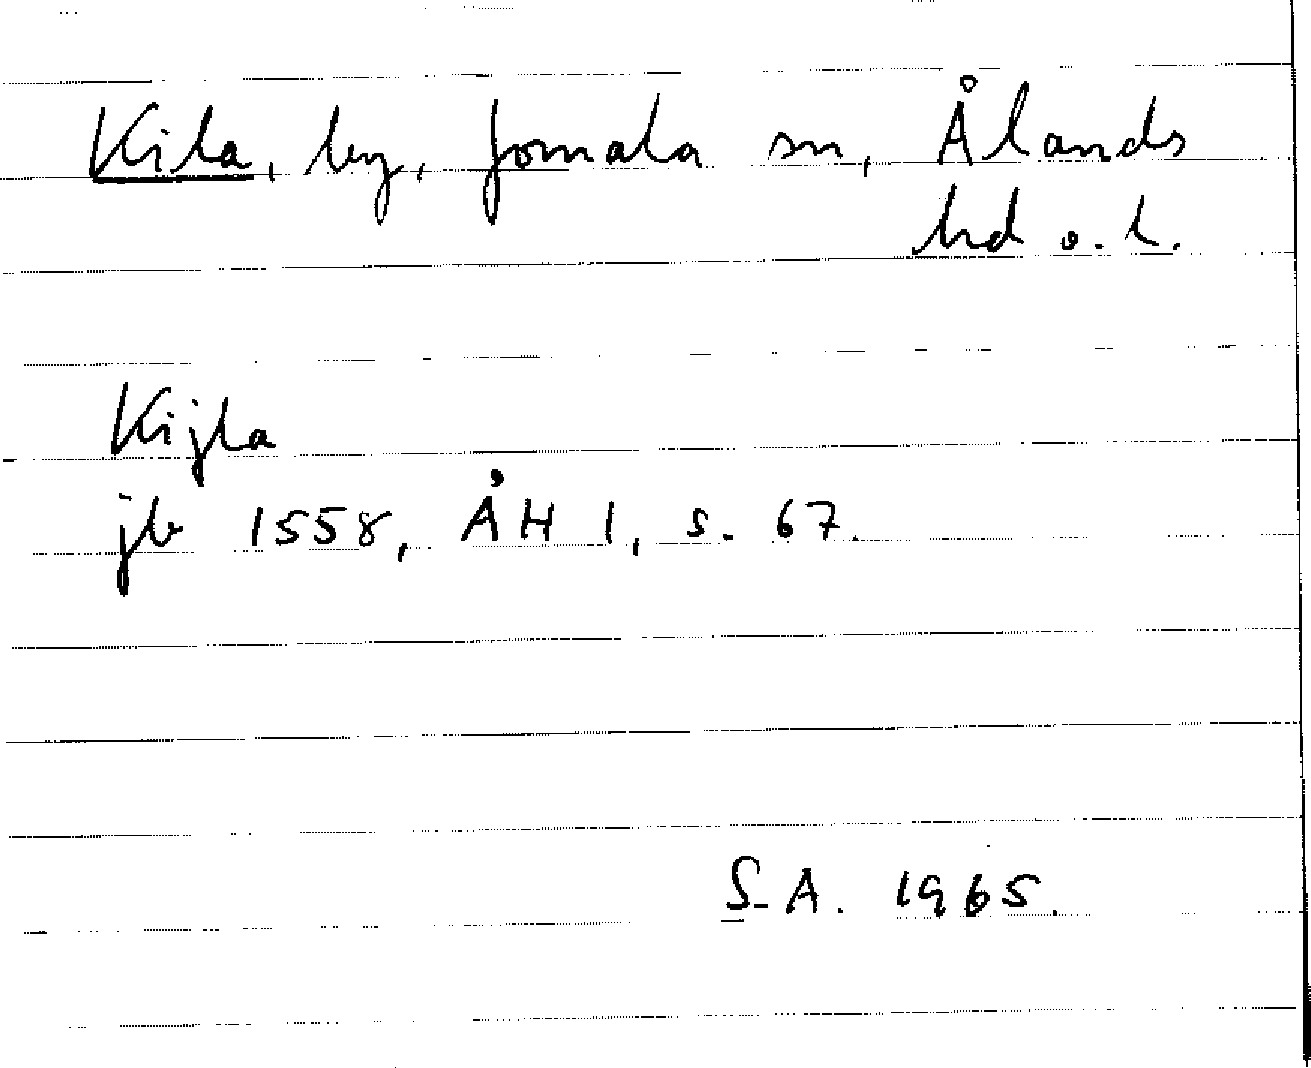 Kila, by, Jomala sn, Ålands
hd o. l.
Kijla
jb 1558, ÅH 1, s. 67.
S. A. 1965.